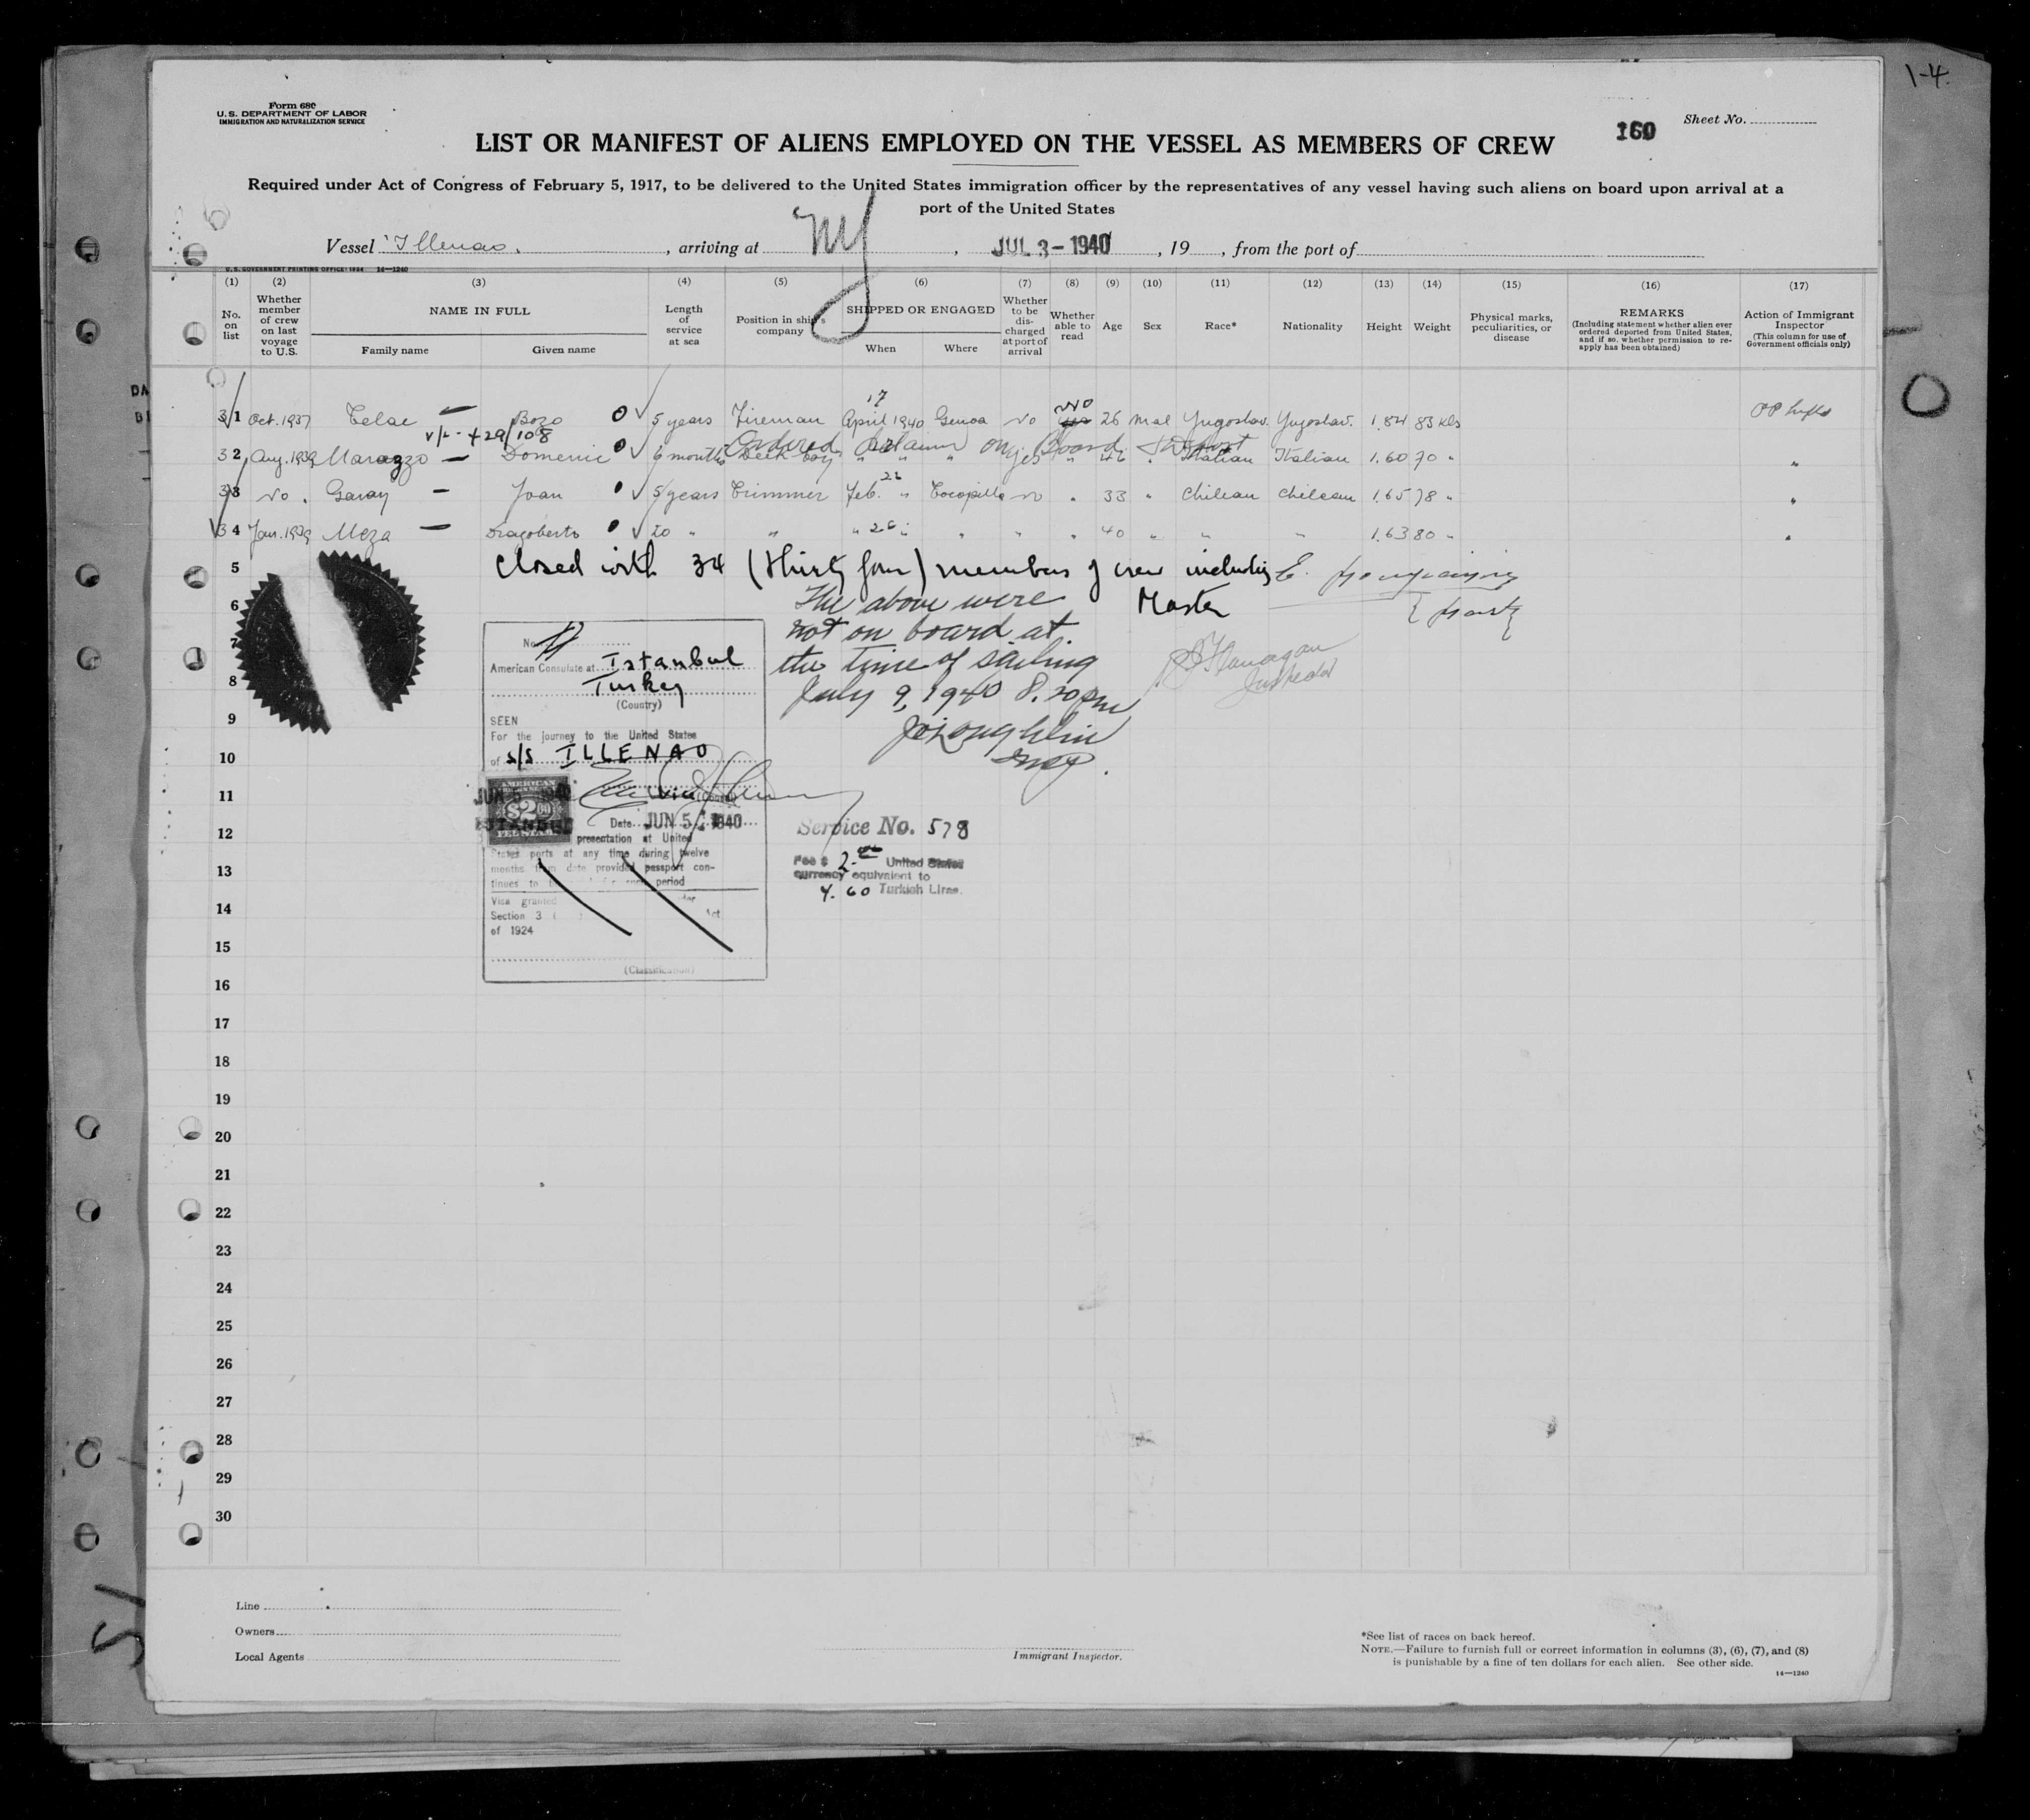 1-4.
Form 680
U. S. DEPARTMENT OF LABOR
IMMIGRATION AND NATURALIZATION SERVICE
Sheet No.
160
LIST OR MANIFEST OF ALIENS EMPLOYED ON THE VESSEL AS MEMBERS OF CREW
Required under Act of Congress of February 5, 1917, to be delivered to the United States immigration officer by the representatives of any vessel having such aliens on board upon arrival at a
port of the United States
Vessel Illenao, arriving at NY, JUL 3-1940, 19, from the port of
U. S. GOVERNMENT PRINTING OFFICE: 1934 14—1240
(1) (2) (3) (4) (5) (6) (7) (8) (9) (10) (11) (12) (13) (14) (15) (16) (17)
No. on list
Whether member of crew on last voyage to U.S.
NAME IN FULL
Family name
Given name
Length of service at sea
Position in ship's company
SHIPPED OR ENGAGED
When
Where
Whether to be discharged at port of arrival
Whether able to read
Age
Sex
Race*
Nationality
Height
Weight
Physical marks, peculiarities, or disease
REMARKS
(Including statement whether alien ever ordered deported from United States, and if so, whether permission to re-apply has been obtained)
Action of Immigrant Inspector
(This column for use of Government officials only)
31 Oct. 1937 Celac — Bozo 5 years Fireman 17 April 1940 Genoa No No yes 26 mal Yugoslav. Yugoslav. 1.84 83 kls
+ 29/108
Ordered Detain On Board
32 Aug. 1939 Marazzo — Domenic 6 months Deck boy " " " yes " 46 " Italian Italian 1.60 70 "
33 No. Garay — Joan 5 years Trimmer Feb. 26 " Tocopilla no " 33 " Chilean Chilean 1.65 78 "
34 Jan. 1939 Meza — Dragoberto 20 " " " 26 " " " " 40 " " " 1.63 80 "
5
Closed with 34 (thirty four) members of crew including Master
6
The above were
not on board at
the time of sailing
July 9, 1940 8.20 pm
J. Loughlin
Insp.
Flanagan
7
No.
American Consulate at Istanbul
Turkey
(Country)
8
SEEN
For the journey to the United States
of s/s ILLENAO
9
10
11
AMERICAN
$2.00
FEE STAMP
JUN 5 1940
ISTANBUL
Vice (Consul)
Date JUN 5 1940
12
presentation at United
States ports at any time during twelve
months from date provided passport con-
tinues to be period
13
Visa granted
Section 3 ( ) Act
of 1924
(Classification)
Service No. 578
Fee $ 2.00 United States
currency equivalent to
4.60 Turkish Liras.
14
15
16
17
18
19
20
21
22
23
24
25
26
27
28
29
30
Line
Owners
Local Agents
Immigrant Inspector.
*See list of races on back hereof.
NOTE.—Failure to furnish full or correct information in columns (3), (6), (7), and (8)
is punishable by a fine of ten dollars for each alien. See other side.
14—1240